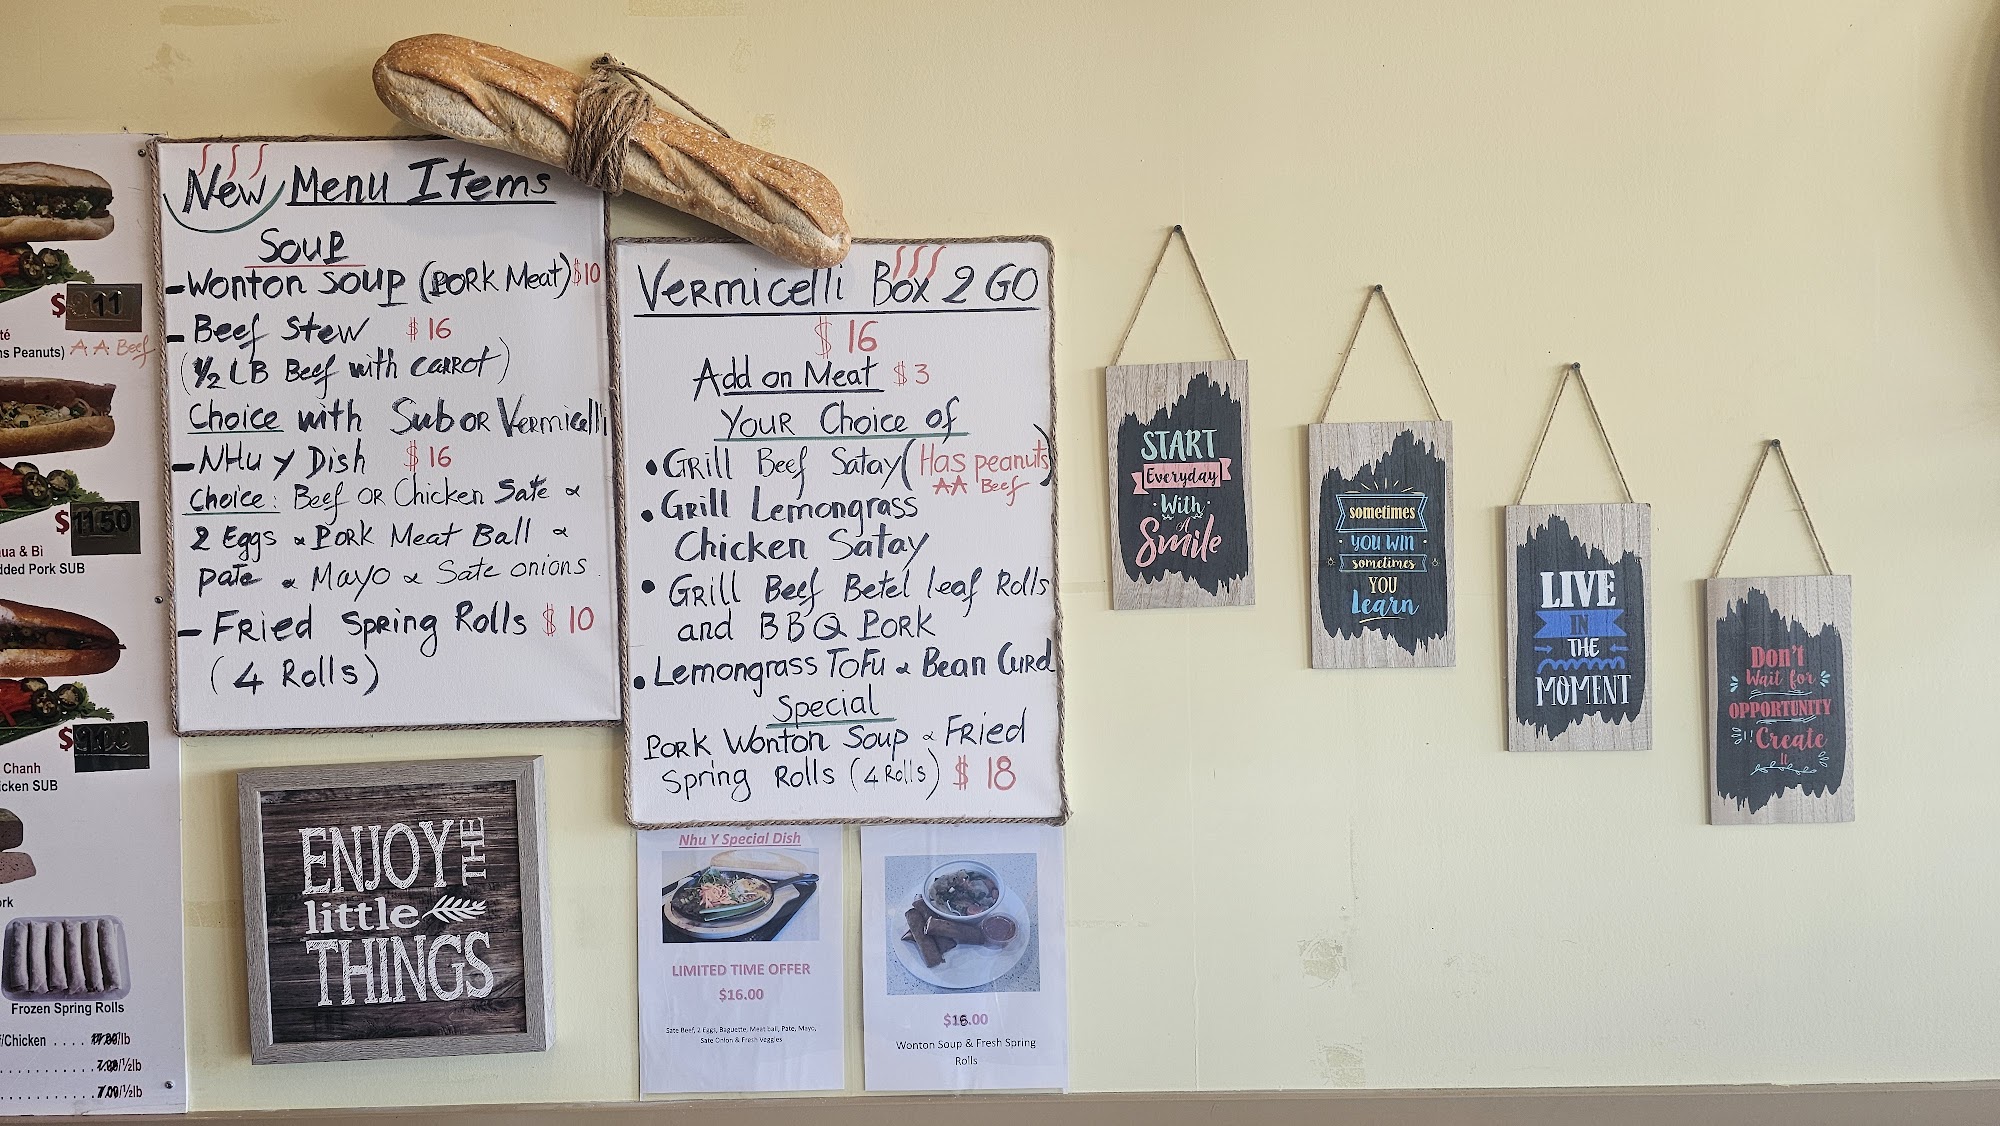 $ 11
té
ns Peanuts) AA Beef
$ 11.50
ua & Bì
dded Pork SUB
$
Chanh
icken SUB
ork
Frozen Spring Rolls
/Chicken . . . . /lb
/½lb
/½lb
New Menu Items
Soup
- Wonton soup (PORK Meat) $10
- Beef Stew $16
(1/2 LB Beef with carrot)
Choice with Sub OR Vermicelli
- NHu Y Dish $16
Choice: Beef OR Chicken Sate &
2 Eggs & PORK Meat Ball &
pate & Mayo & Sate onions
- Fried Spring Rolls $10
(4 Rolls)
ENJOY THE
little
THINGS
Vermicelli Box 2 GO
$16
Add on Meat $3
YOUR Choice of
• GRill Beef Satay (Has peanuts)
AA Beef
• GRill Lemongrass
Chicken Satay
• GRill Beef Betel leaf Rolls
and BBQ PORK
• Lemongrass ToFu & Bean Curd
Special
PORK Wonton Soup & FRied
Spring Rolls (4 Rolls) $18
Nhu Y Special Dish
LIMITED TIME OFFER
$16.00
Sate Beef, 2 Eggs, Baguette, Meat ball, Pate, Mayo,
Sate Onion & Fresh veggies
.00
Wonton Soup & Fresh Spring
Rolls
START
Everyday
With
A
Smile
sometimes
YOU WIN
sometimes
YOU
Learn
LIVE
IN
THE
MOMENT
Don't
Wait for
OPPORTUNITY
Create
It